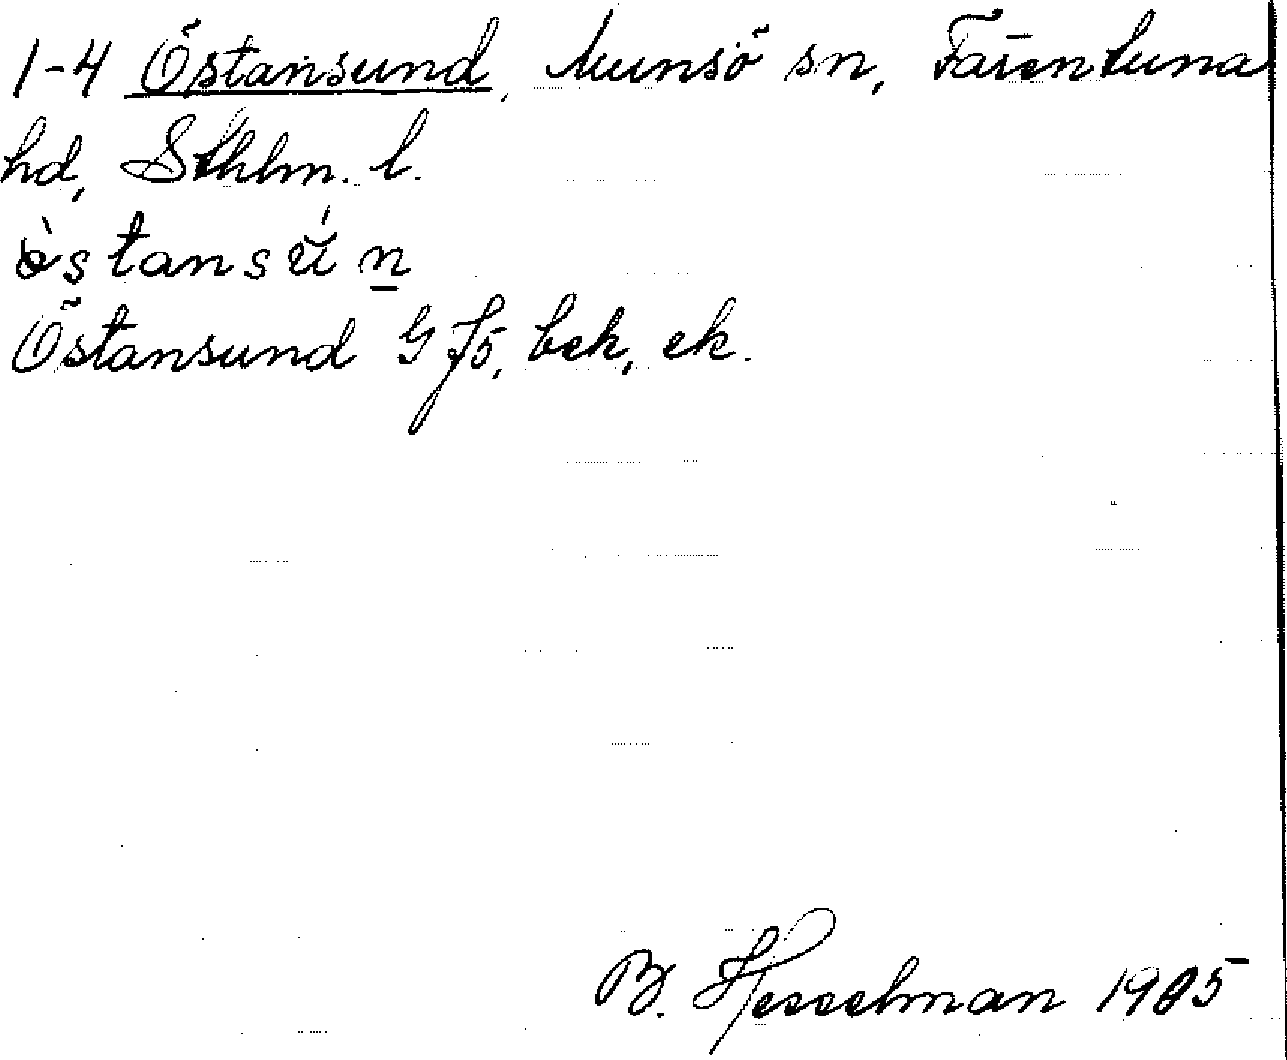 1-4 Östansund, Munsö sn, Färentuna
hd, Sthlm. l.
östansún
Östansund G J5, bek, ek.
B. Hesselman 1905